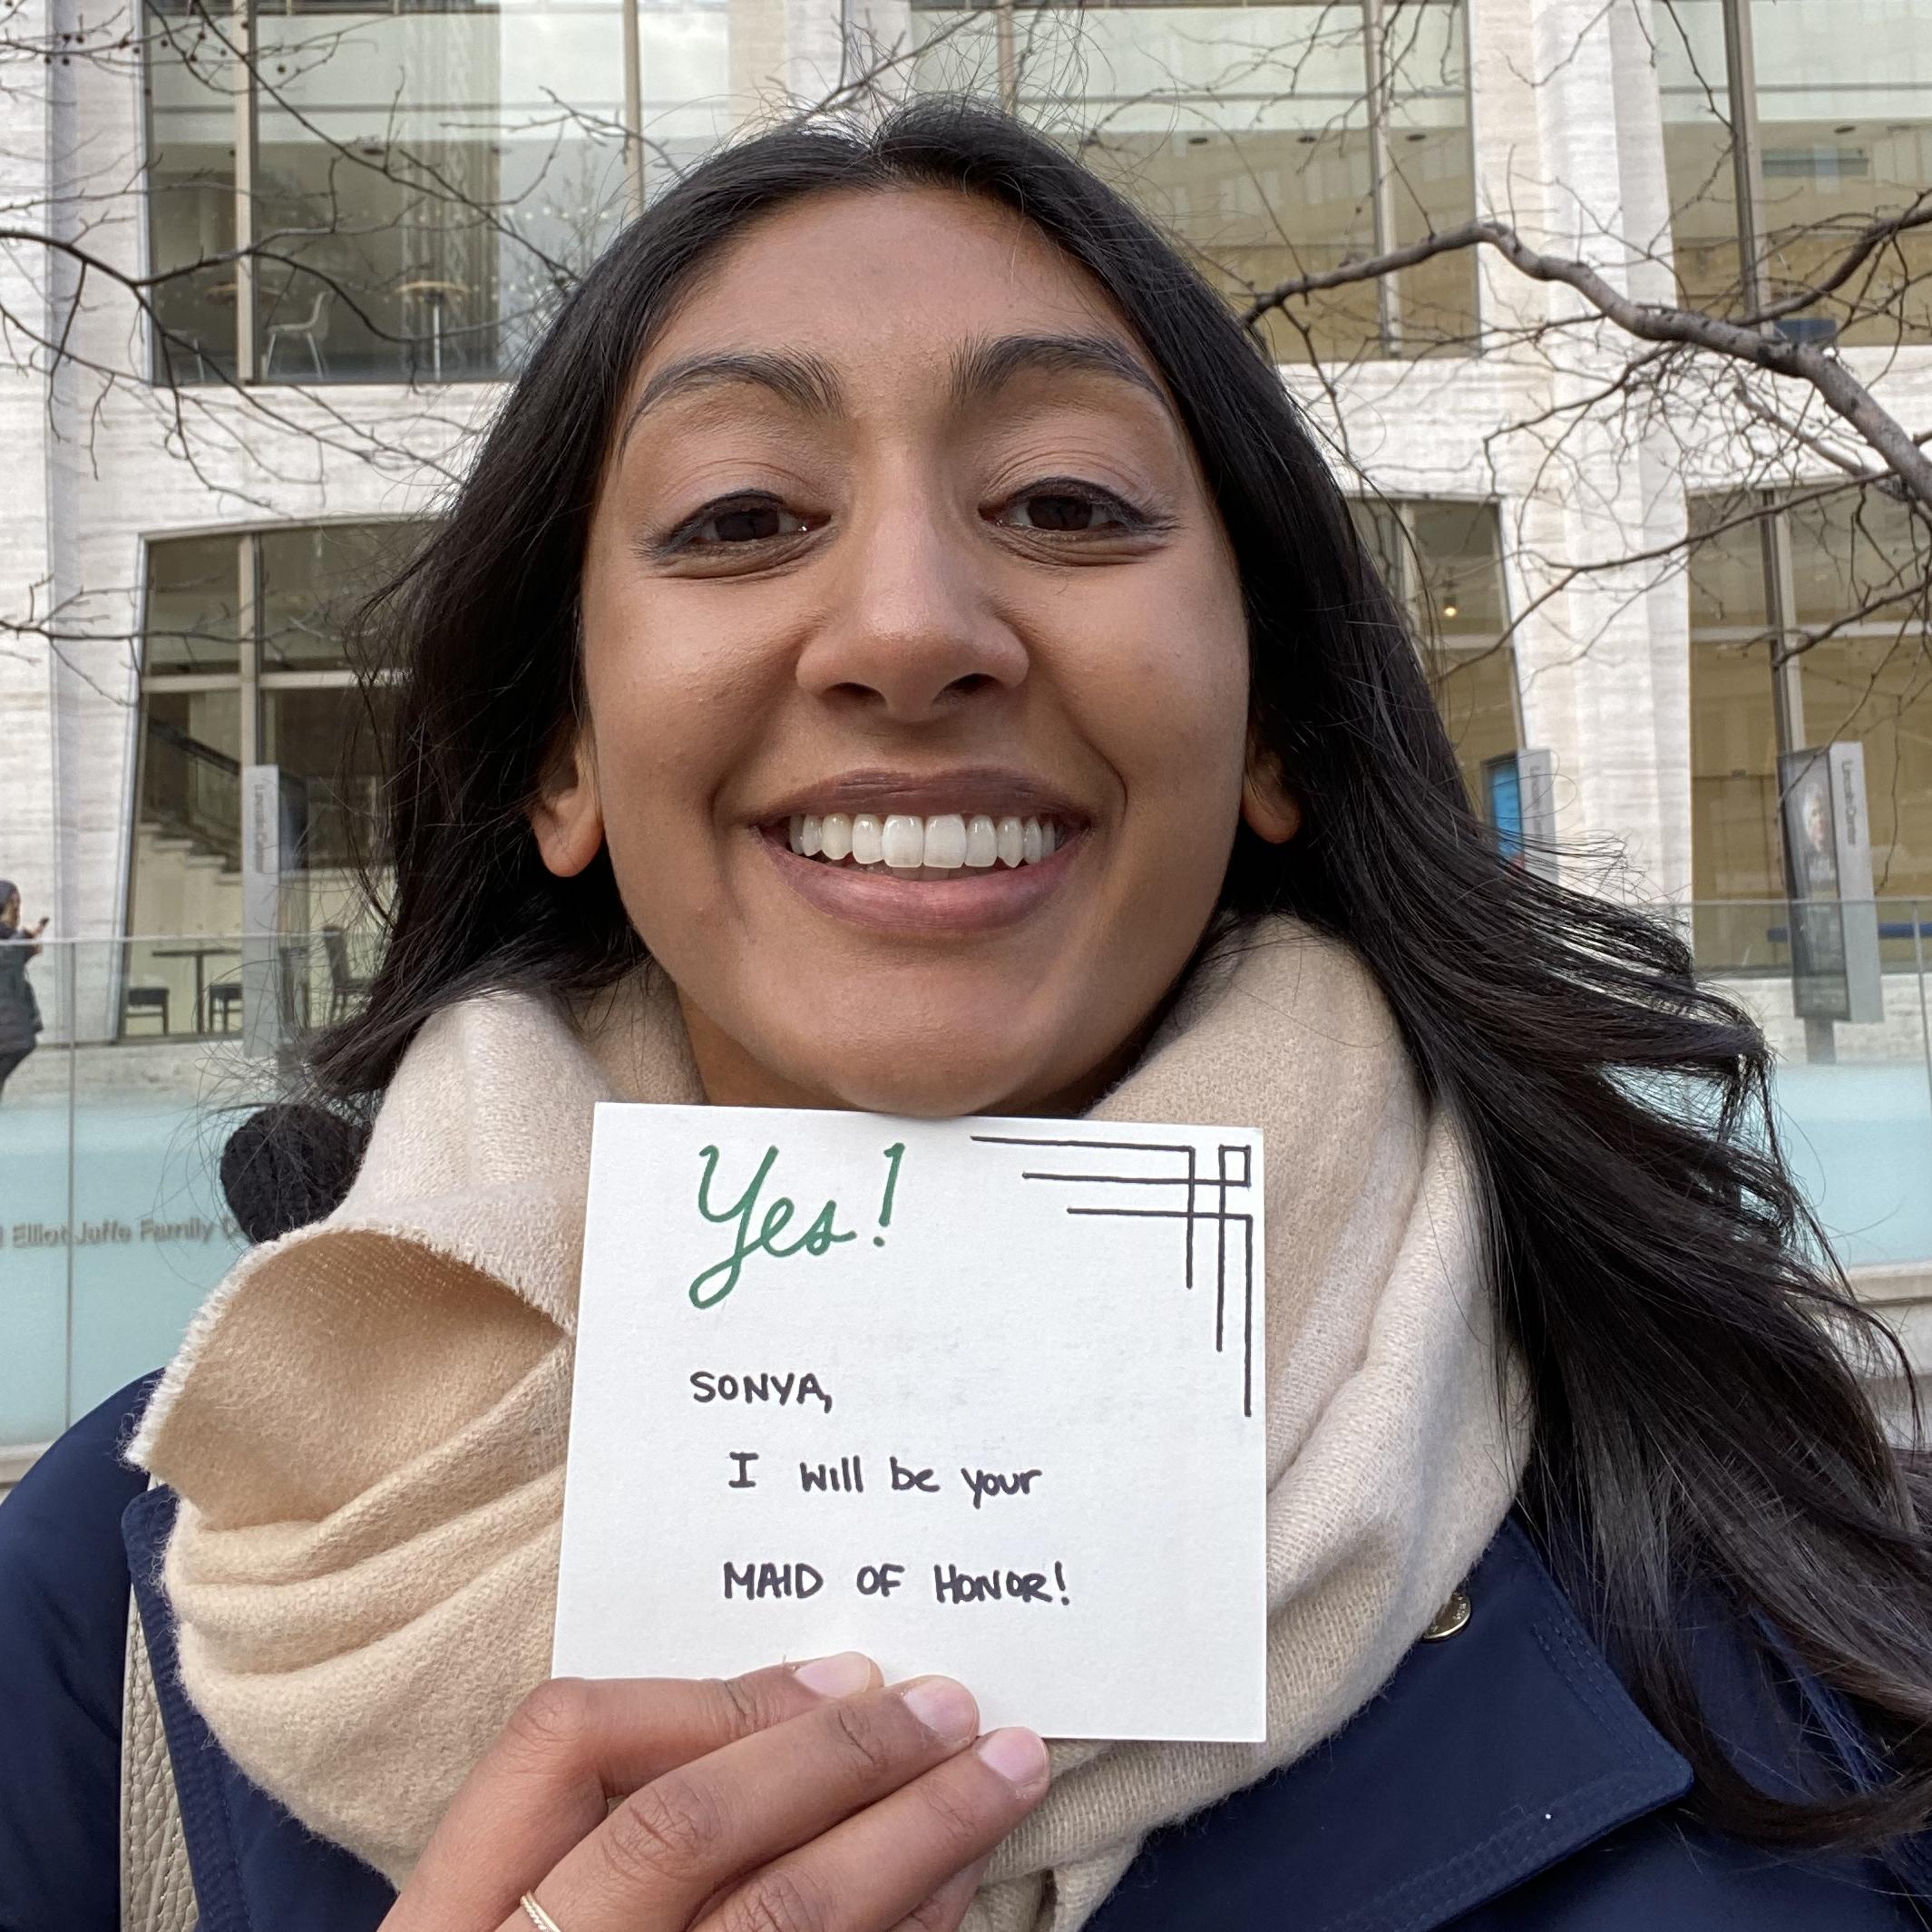 Yes!
SONYA,
I will be your
MAID OF HONOR!
Elliot Jaffe Family